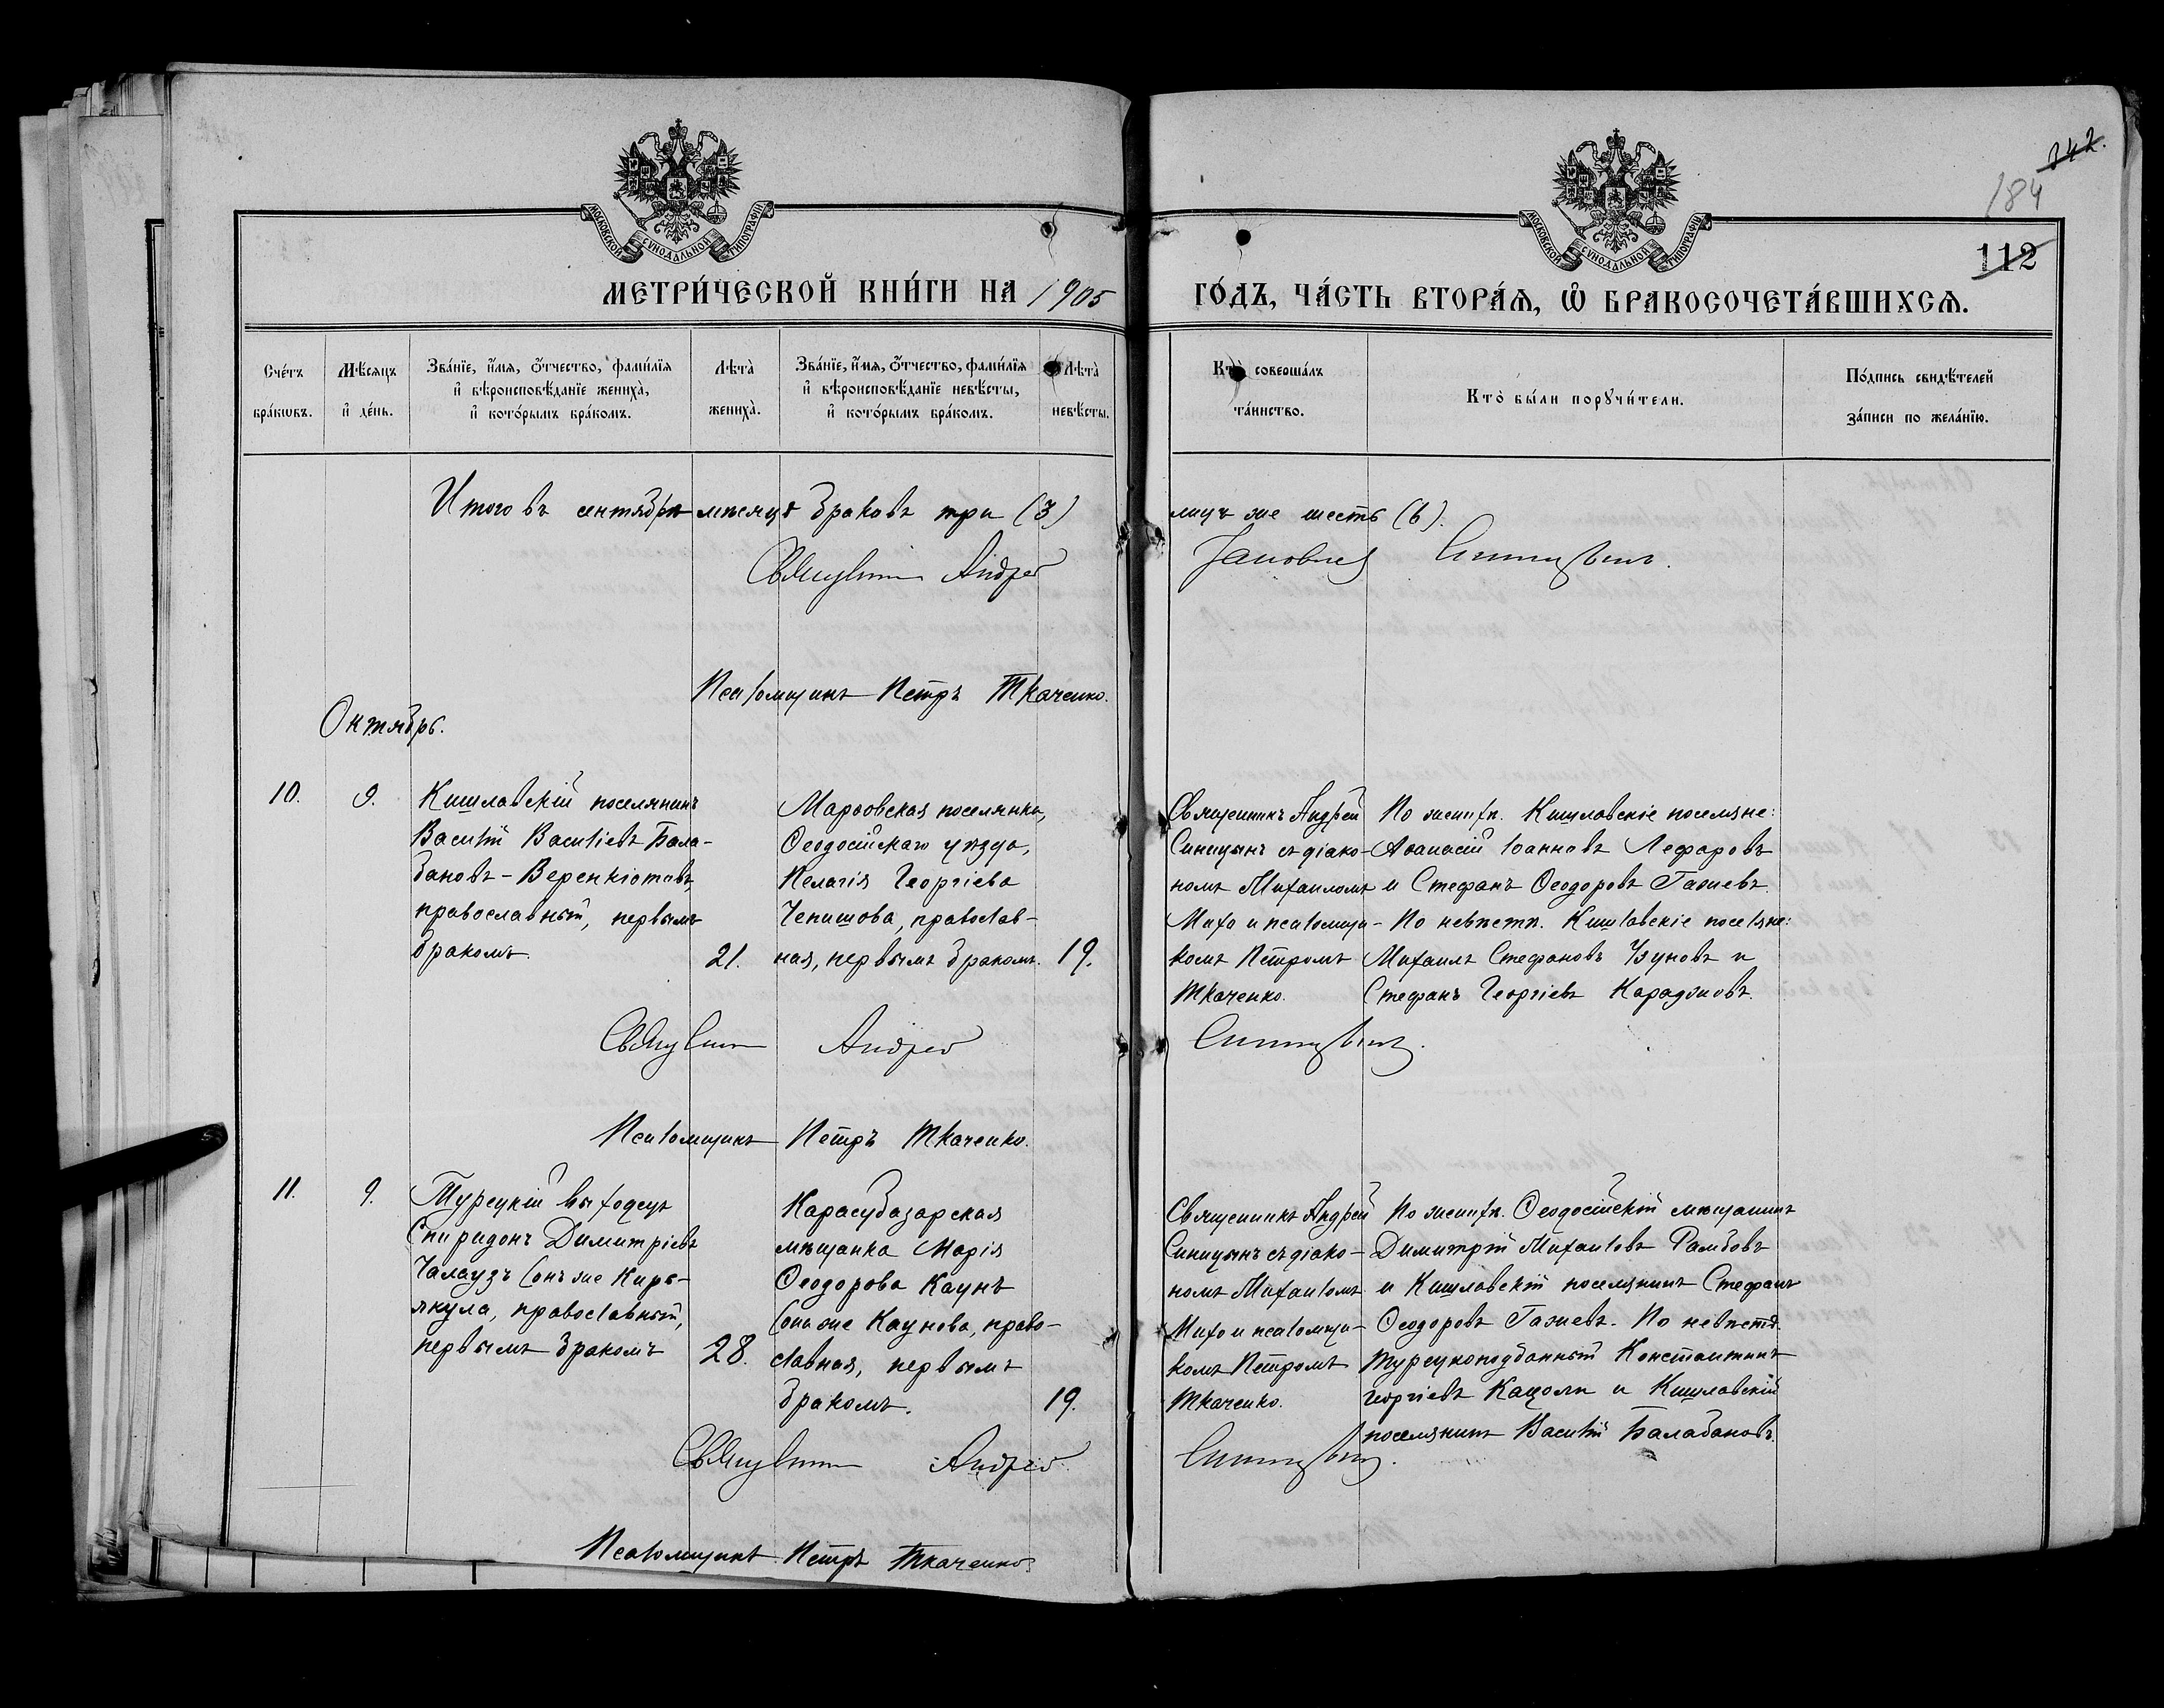 342.
184
112
МОСКОВСКОЙ СѴНОДАЛЬНОЙ ТИПОГРАФІИ
МОСКОВСКОЙ СѴНОДАЛЬНОЙ ТИПОГРАФІИ
МЕТРИ́ЧЕСКОЙ КНИ́ГИ НА 1905
ГО́ДЪ, ЧА́СТЬ ВТОРА́Я, Ѡ҆ БРАКОСОЧЕТА́ВШИХСѦ.
Сче́тъ бра́кѡвъ.
Мѣ́сяцъ и҆ де́нь.
Зва́нїе, и҆́мя, ѻ҆́тчество, фами́лїя
и҆ вѣроисповѣ́данїе жениха̀,
и҆ кото́рымъ бра́комъ.
Лѣта̀ жениха̀.
Зва́нїе, и҆́мя, ѻ҆́тчество, фами́лїя
и҆ вѣроисповѣ́данїе невѣ́сты,
и҆ кото́рымъ бра́комъ.
Лѣта̀ невѣ́сты.
Кто̀ соверша́лъ
та́инство.
Кто̀ бы́ли порꙋчи́тели.
По́дпись свидѣ́телей
за́писи по жела́нїю.
Итого въ сентябрѣ мѣсяцѣ браковъ три (3)
лицъ же шесть (6).
Священникъ Андрей
Синицынъ.
Псаломщикъ Петръ Ткаченко.
Октябрь.
10.
9.
Кишлавскій поселянинъ
Василій Васильевъ Бала-
бановъ-Веренкіотовъ,
православный, первымъ
бракомъ.
21.
Марѳовская поселянка,
Ѳеодосійскаго уѣзда,
Пелагія Георгіева
Чепишова, православ-
ная, первымъ бракомъ.
19.
Священникъ Андрей
Синицынъ съ діако-
номъ Михаиломъ
Михо и псаломщи-
комъ Петромъ
Ткаченко.
По женихѣ. Кишлавскіе поселяне:
Аѳанасій Іоанновъ Лефаровъ
и Стефанъ Ѳеодоровъ Гажевъ.
По невѣстѣ. Кишлавскіе поселяне:
Михаилъ Стефановъ Узуновъ и
Стефанъ Георгіевъ Караджовъ.
Священникъ Андрей Синицынъ.
Псаломщикъ Петръ Ткаченко.
11.
9.
Турецкій выходецъ
Спиридонъ Димитріевъ
Чалаузъ (онъ же Кирь-
якула, православный,
первымъ бракомъ
28.
Карасубазарская
мѣщанка Марія
Ѳеодорова Каунъ
(она же Каунова, право-
славная, первымъ
бракомъ.
19.
Священникъ Андрей
Синицынъ съ діако-
номъ Михаиломъ
Михо и псаломщи-
комъ Петромъ
Ткаченко.
По женихѣ. Ѳеодосійскій мѣщанинъ
Димитрій Михаиловъ Рамбовъ
и Кишлавскій поселянинъ Стефанъ
Ѳеодоровъ Гажевъ. По невѣстѣ.
турецкоподданный Константинъ
Георгіевъ Кацоли и Кишлавскій
поселянинъ Василій Балабановъ.
Священникъ Андрей Синицынъ.
Псаломщикъ Петръ Ткаченко